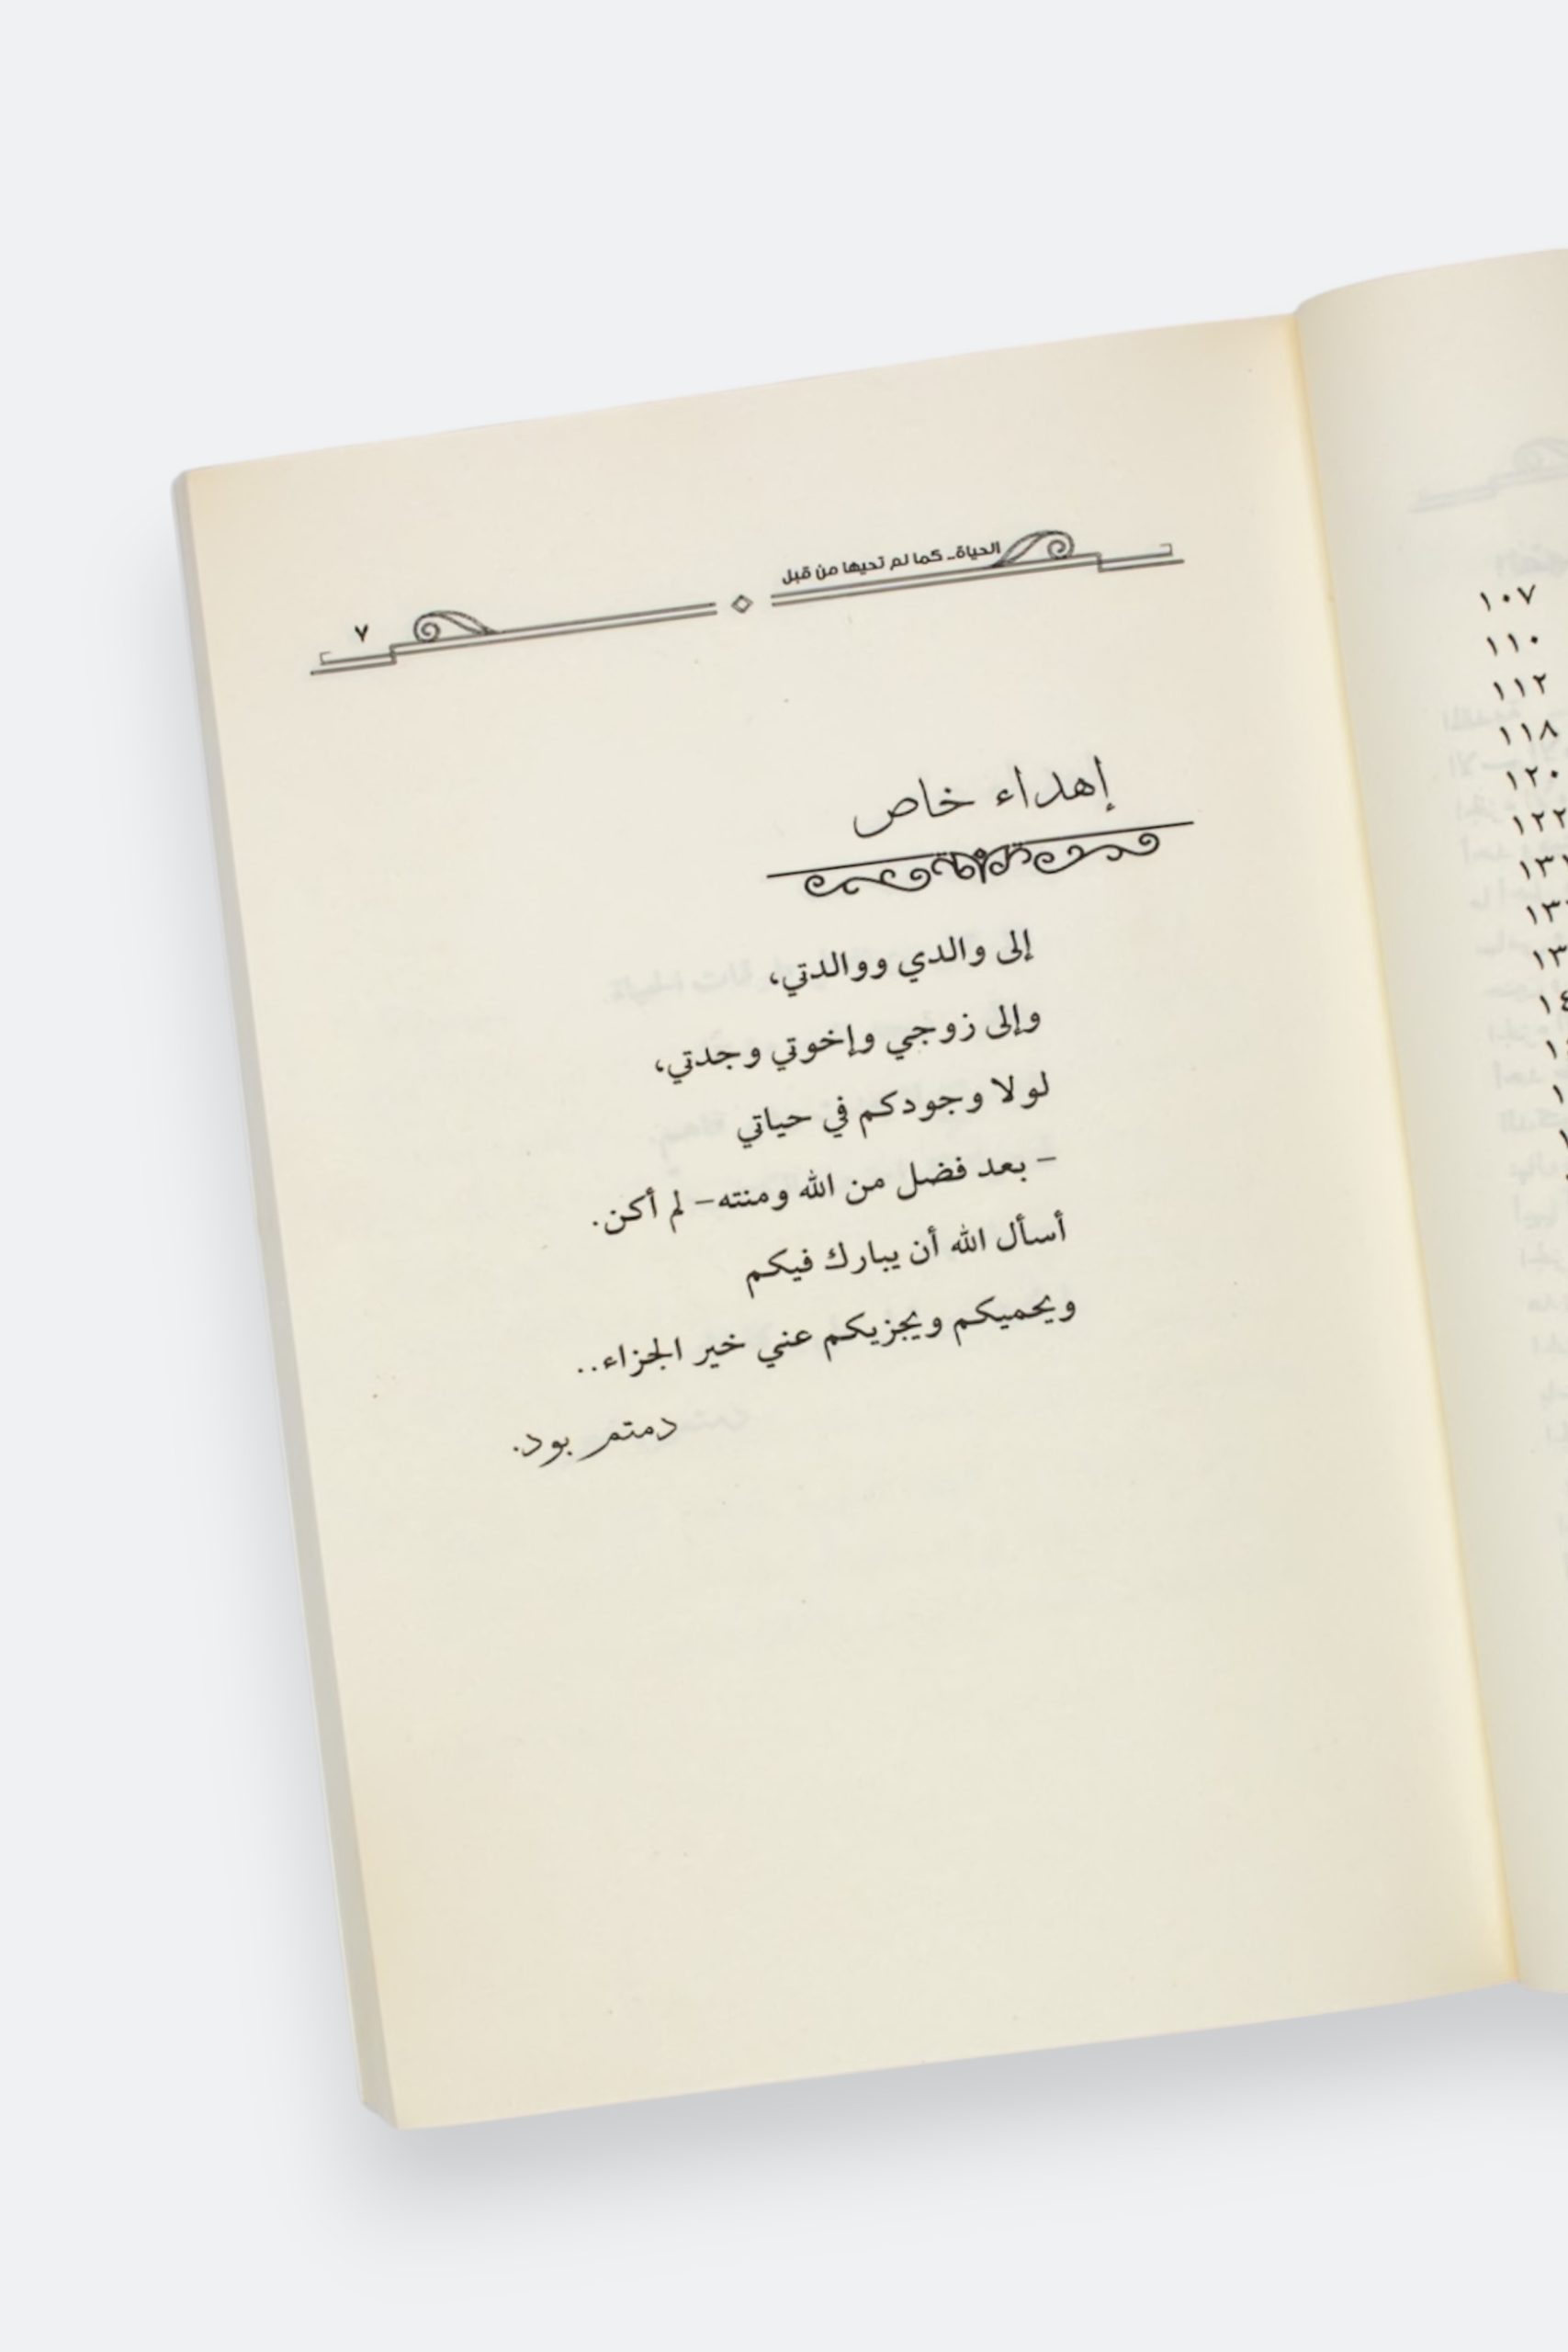 الحياة- كما لم تحيها من قبل
٧
إهداء خاص
إلى والدي ووالدتي،
وإلى زوجي وإخوتي وجدتي،
لولا وجودكم في حياتي
- بعد فضل من الله ومنته- لم أكن.
أسأل الله أن يبارك فيكم
ويحميكم ويجزيكم عني خير الجزاء..
دمتم بود.
١٠٧
١١٠
١١٢
١١٨
١٢٠
١٢٢